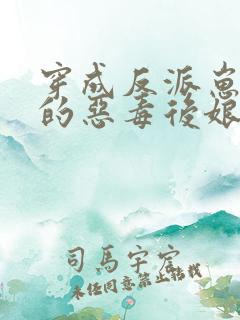 穿成反派崽
的惡毒後娘
司馬宇宏
未经同意禁止转载